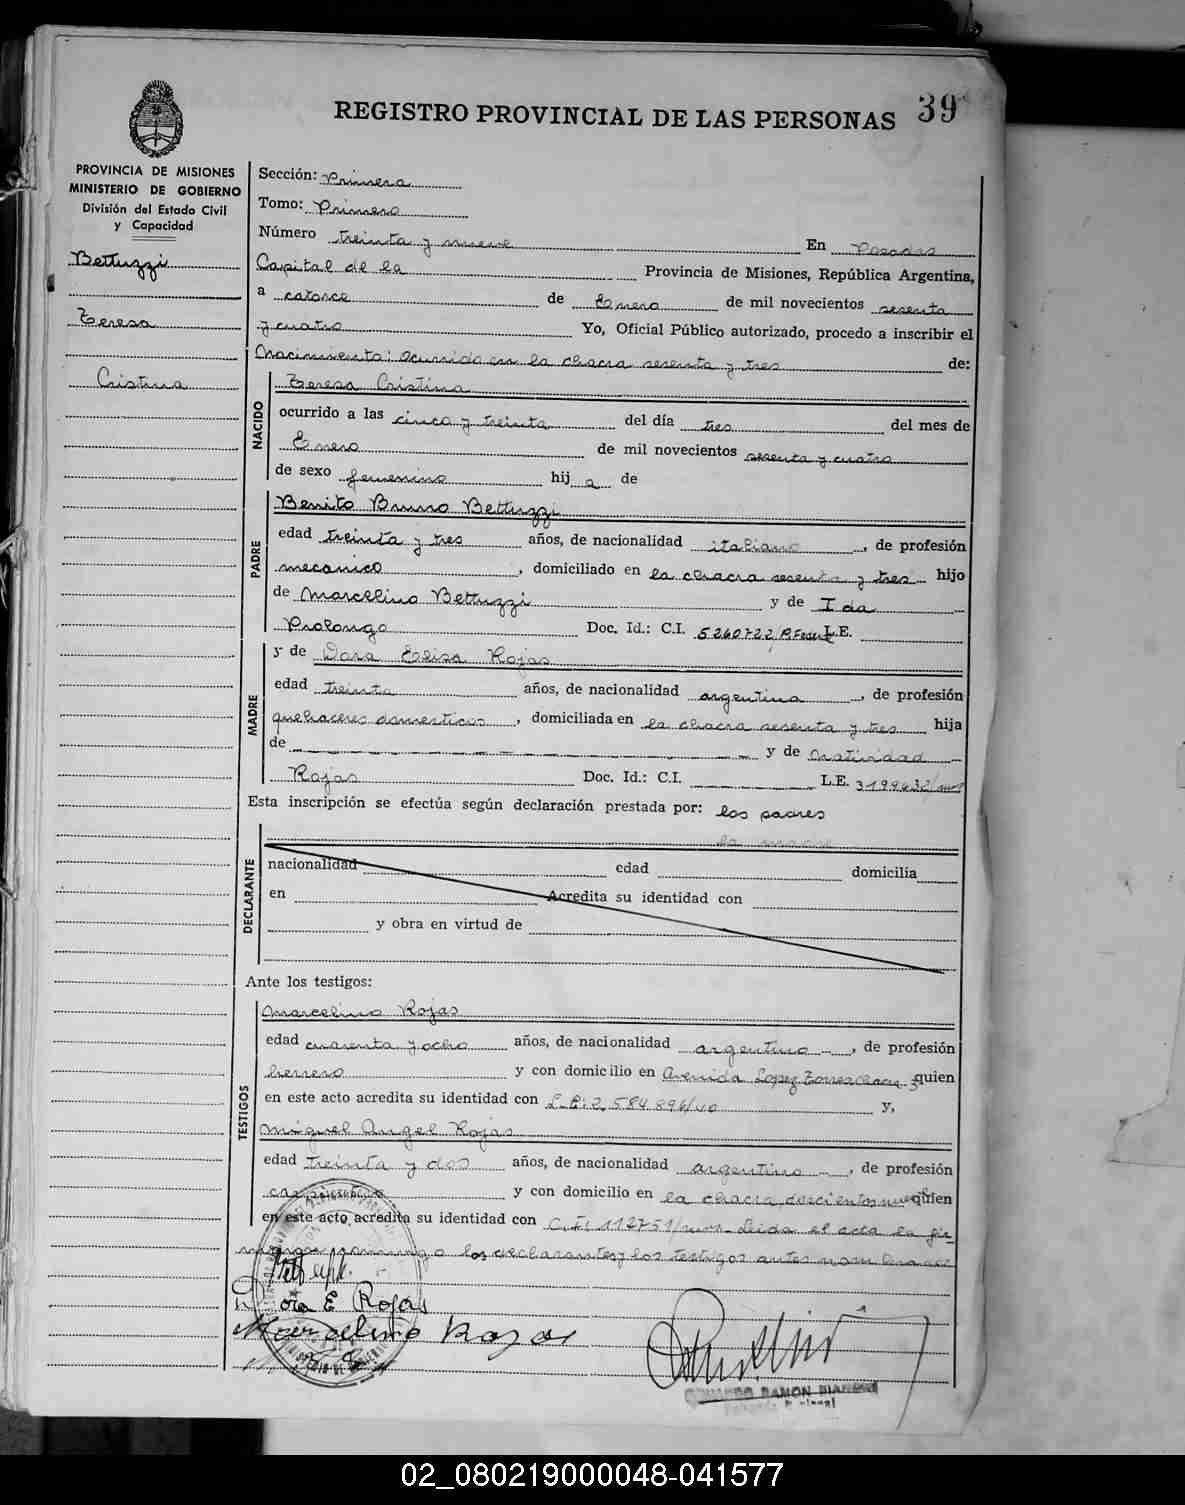 REGISTRO PROVINCIAL DE LAS PERSONAS 39
PROVINCIA DE MISIONES
MINISTERIO DE GOBIERNO
División del Estado Civil
y Capacidad
Bettuzzi
Teresa
Cristina
Sección: Primera
Tomo: Primero
Número treinta y nueve En Posadas
Capital de la Provincia de Misiones, República Argentina,
a catorce de Enero de mil novecientos sesenta
y cuatro Yo, Oficial Público autorizado, procedo a inscribir el
Nacimiento: ocurrido en la chacra sesenta y tres de:
NACIDO
Teresa Cristina
ocurrido a las cinco y treinta del día tres del mes de
Enero de mil novecientos sesenta y cuatro
de sexo femenino hij a de
PADRE
Benito Bruno Bettuzzi
edad treinta y tres años, de nacionalidad italiano, de profesión
mecánico, domiciliado en la chacra sesenta y tres hijo
de Marcelino Bettuzzi y de Ida
Prolongo Doc. Id.: C.I. 5260722 L.E.
MADRE
y de Dora Elisa Rojas
edad treinta años, de nacionalidad argentina, de profesión
quehaceres domesticos, domiciliada en la chacra sesenta y tres hija
de y de Natividad
Rojas Doc. Id.: C.I. L.E. 3199632
Esta inscripción se efectúa según declaración prestada por: los padres
DECLARANTE
nacionalidad edad domicilia
en Acredita su identidad con
y obra en virtud de
Ante los testigos:
TESTIGOS
Marcelino Rojas
edad cuarenta y ocho años, de nacionalidad argentino, de profesión
herrero y con domicilio en Avenida Lopez Torres quien
en este acto acredita su identidad con L.E: 2.584.896/40 y,
Miguel Angel Rojas
edad treinta y dos años, de nacionalidad argentino, de profesión
y con domicilio en la chacra doscientos nueve quien
en este acto acredita su identidad con C.I. 112751/mnes. Leida el acta la fir
los declarantes y los testigos antes nombrados
Dora E Rojas
Marcelino Rojas
RAMON
02_080219000048-041577